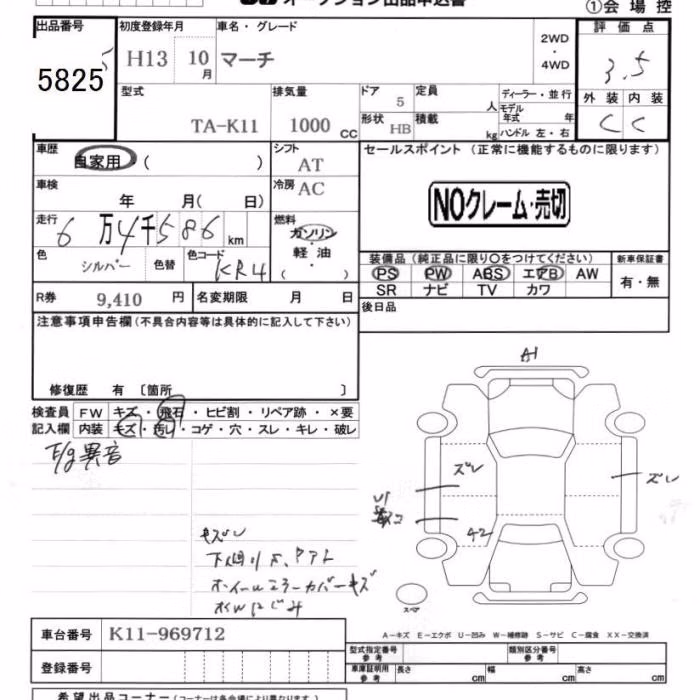 オークション出品申込書
①会場控
出品番号 初度登録年月 車名・グレード 2WD・4WD 評価点
5825 H13 10月 マーチ 3.5
型式 排気量 ドア 5 定員 人 ディーラー・並行 外装 内装
TA-K11 1000cc 形状 HB 積載 kg モデル年式 年 C C
ハンドル 左・右
車歴 自家用 ( ) シフト AT セールスポイント (正常に機能するものに限ります)
車検 年 月( 日) 冷房 AC NOクレーム・売切
走行 6万4千586km 燃料 ガソリン・軽油 ( )
色 シルバー 色替 色コード KR4
装備品 (純正品に限り〇をつけてください) 新車保証書
PS PW ABS エアB AW 有・無
SR ナビ TV カワ
R券 9,410円 名変期限 月 日 後日品
注意事項申告欄(不具合内容等は具体的に記入して下さい)
修復歴 有 〔箇所 〕
検査員 FW キズ・飛石・ヒビ割・リペア跡・×要
記入欄 内装 キズ・汚レ・コゲ・穴・スレ・キレ・破レ
E/g異音
A1
ズレ
ズレ
U1
42
キズレ
ホイールミラーカバーキズ
水Wにじみ
スペア
A-キズ E-エクボ U-凹み W-補修跡 S-サビ C-腐食 XX-交換済
車台番号 K11-969712
登録番号
型式指定番号 参考 類別区分番号 参考
車庫証明用 参考 長さ cm 幅 cm 高さ cm
希望出品コーナー(コーナーは各会場により異なります)